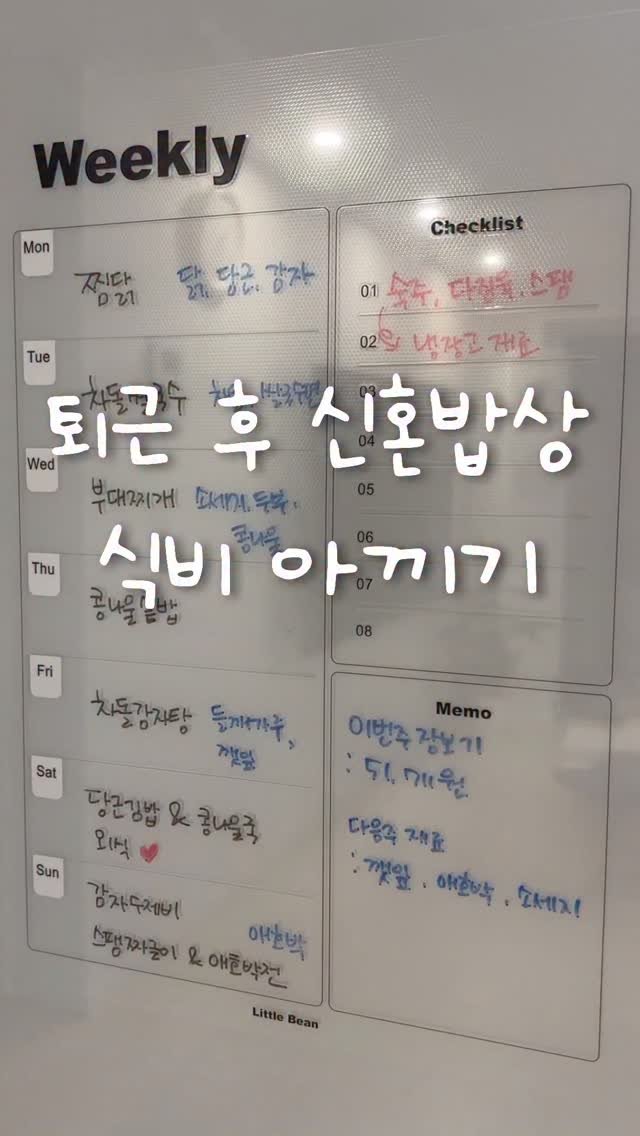 Weekly
Mon
찜닭 닭, 당근, 감자
Tue
차돌 국수
퇴근 후 신혼밥상
Wed
부대찌개 소세지, 두부,
콩나물
식비 아끼기
Thu
콩나물 밥
Fri
차돌감자탕 들깨가루,
깻잎
Sat
당근김밥 & 콩나물국
외식 ❤
Sun
감자수제비 애호박
스팸짜글이 & 애호박전
Checklist
01 숙주, 다짐육, 스팸
02 냉장고 재료
03
04
05
06
07
08
Memo
이번주 장보기
: 51, 원
다음주 재료
: 깻잎, 애호박, 소세지
Little Bean